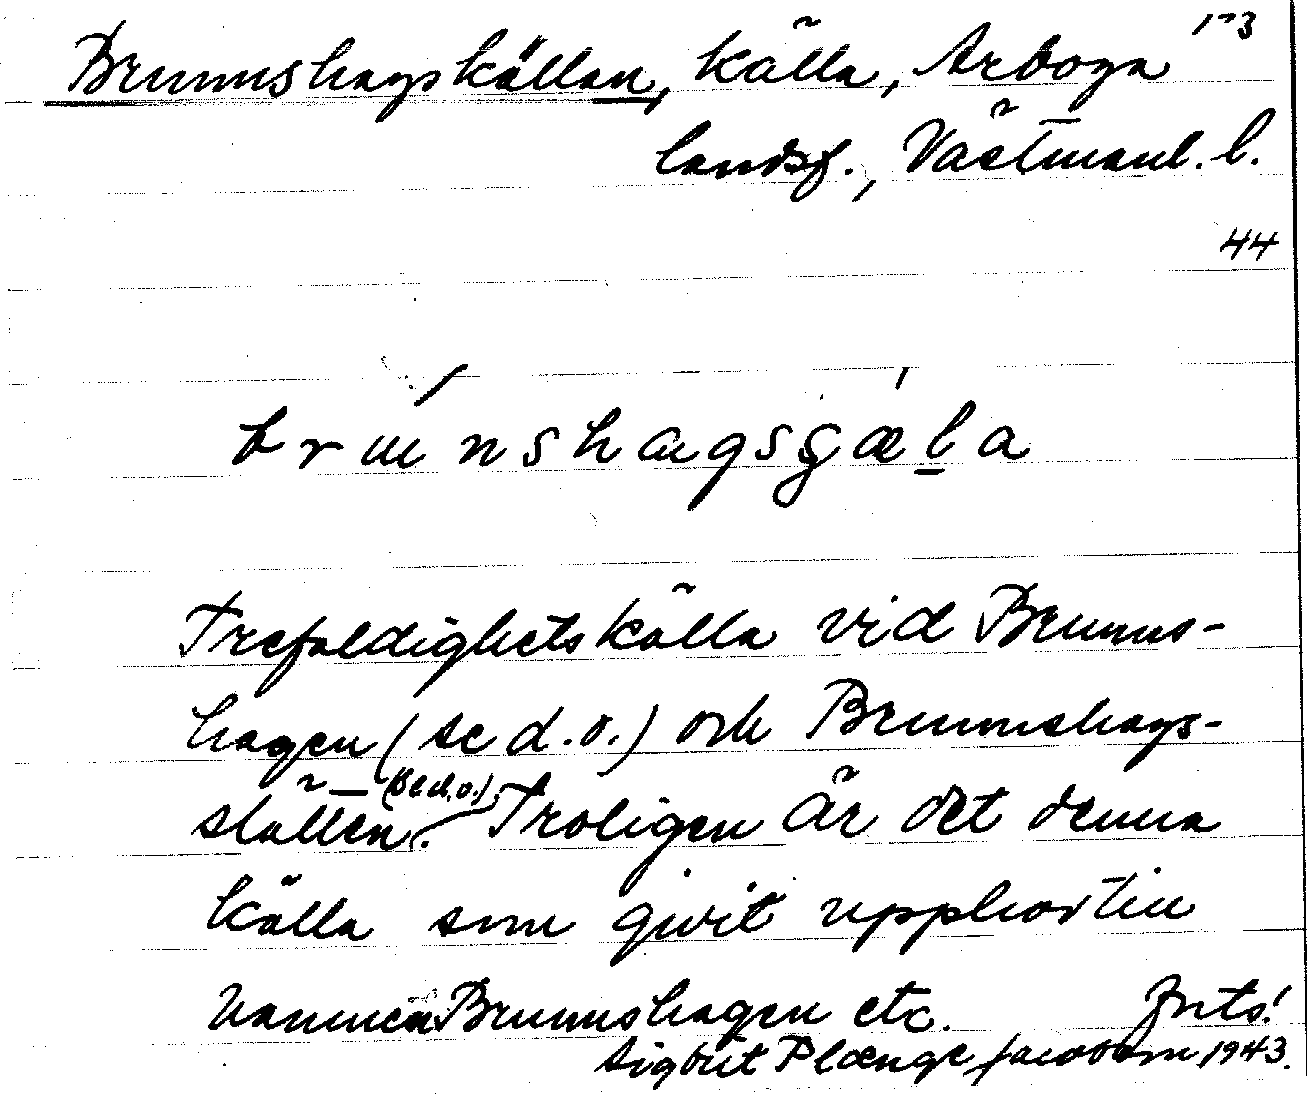 Brunnshagskällan, källa, Arboga
landsf., Västmanl. l.
44
Trefaldighetskälla vid Brunns-
hagen (se d.o.) och Brunnshags-
slätten (se d.o.). Troligen är det denna
källa som givit upphov till
namnen Brunnshagen etc. Forts!
Sigbrit Plænge Jacobson 1943.